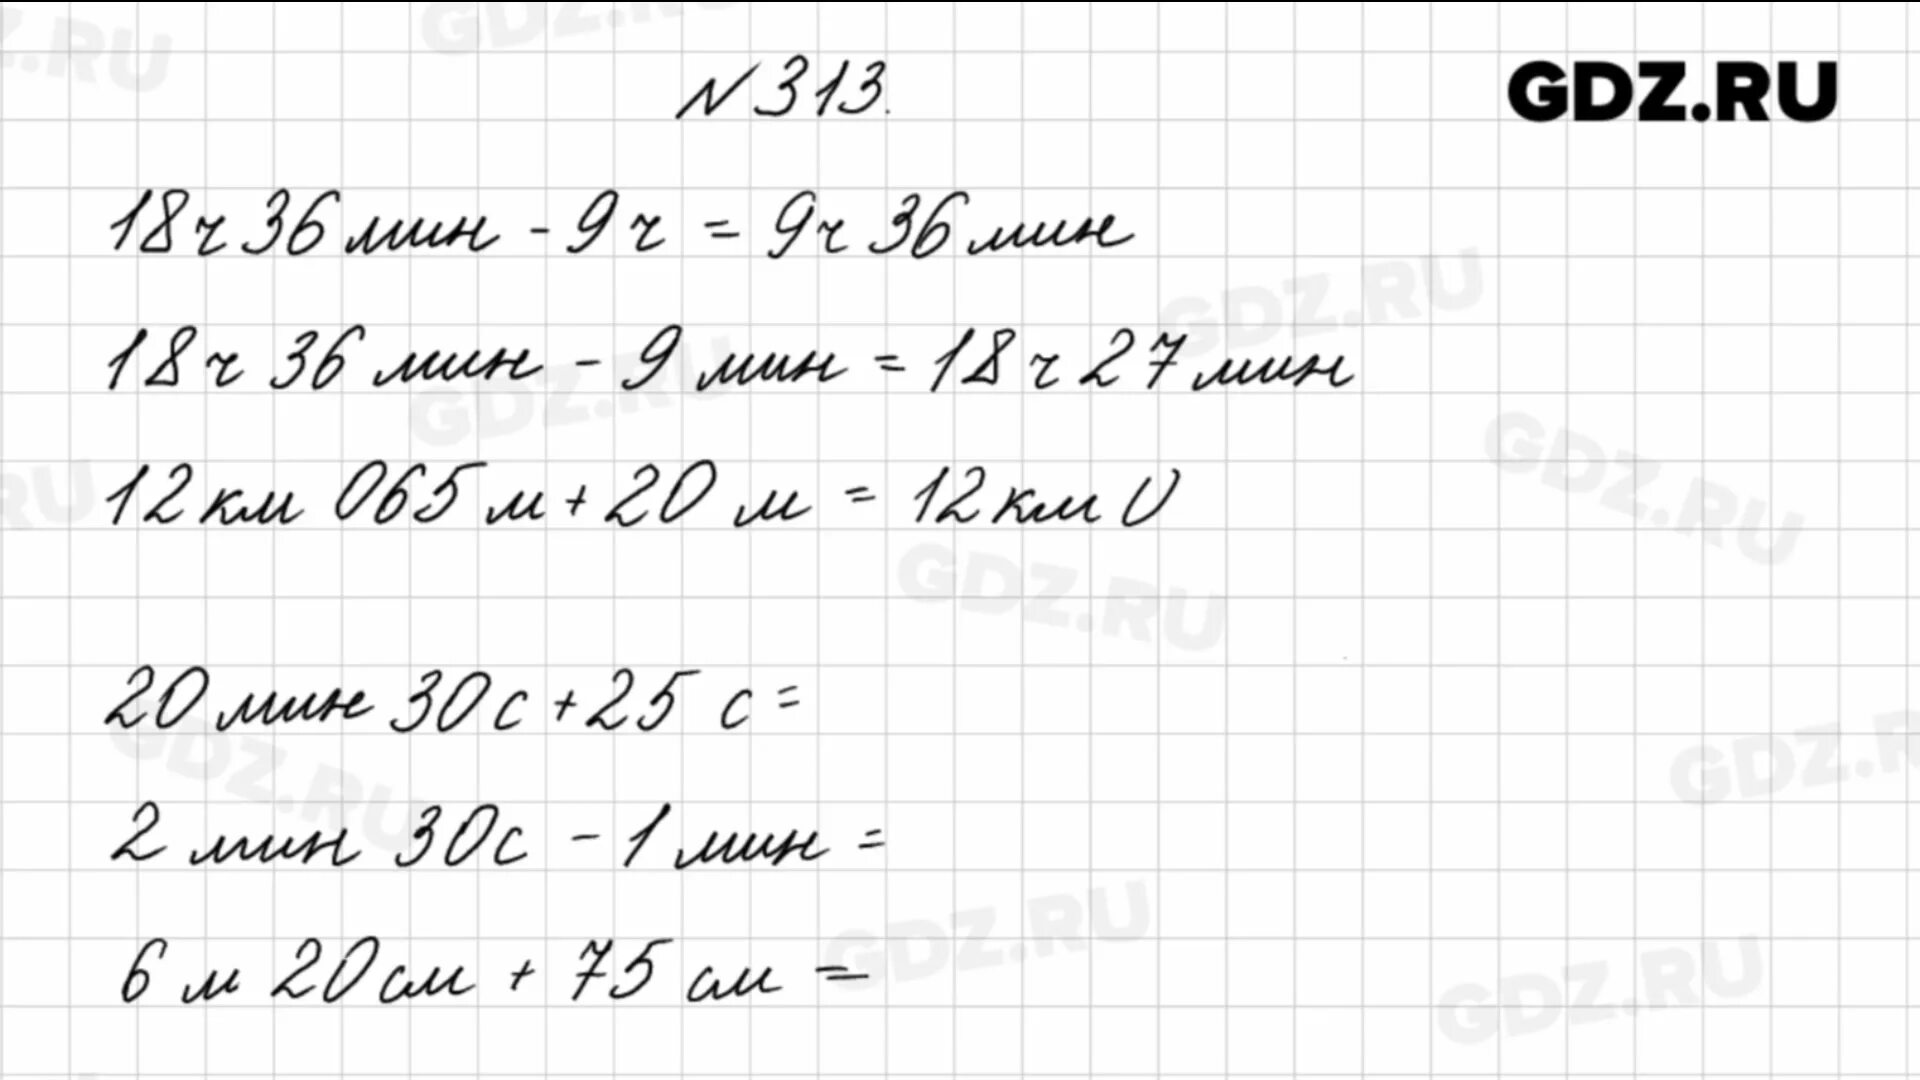 №313.
GDZ.RU
18ч 36мин - 9ч = 9ч 36мин
18ч 36мин - 9мин = 18ч 27мин
12км 065м + 20м = 12км 0
20мин 30с + 25с =
2мин 30с - 1мин =
6м 20см + 75см =